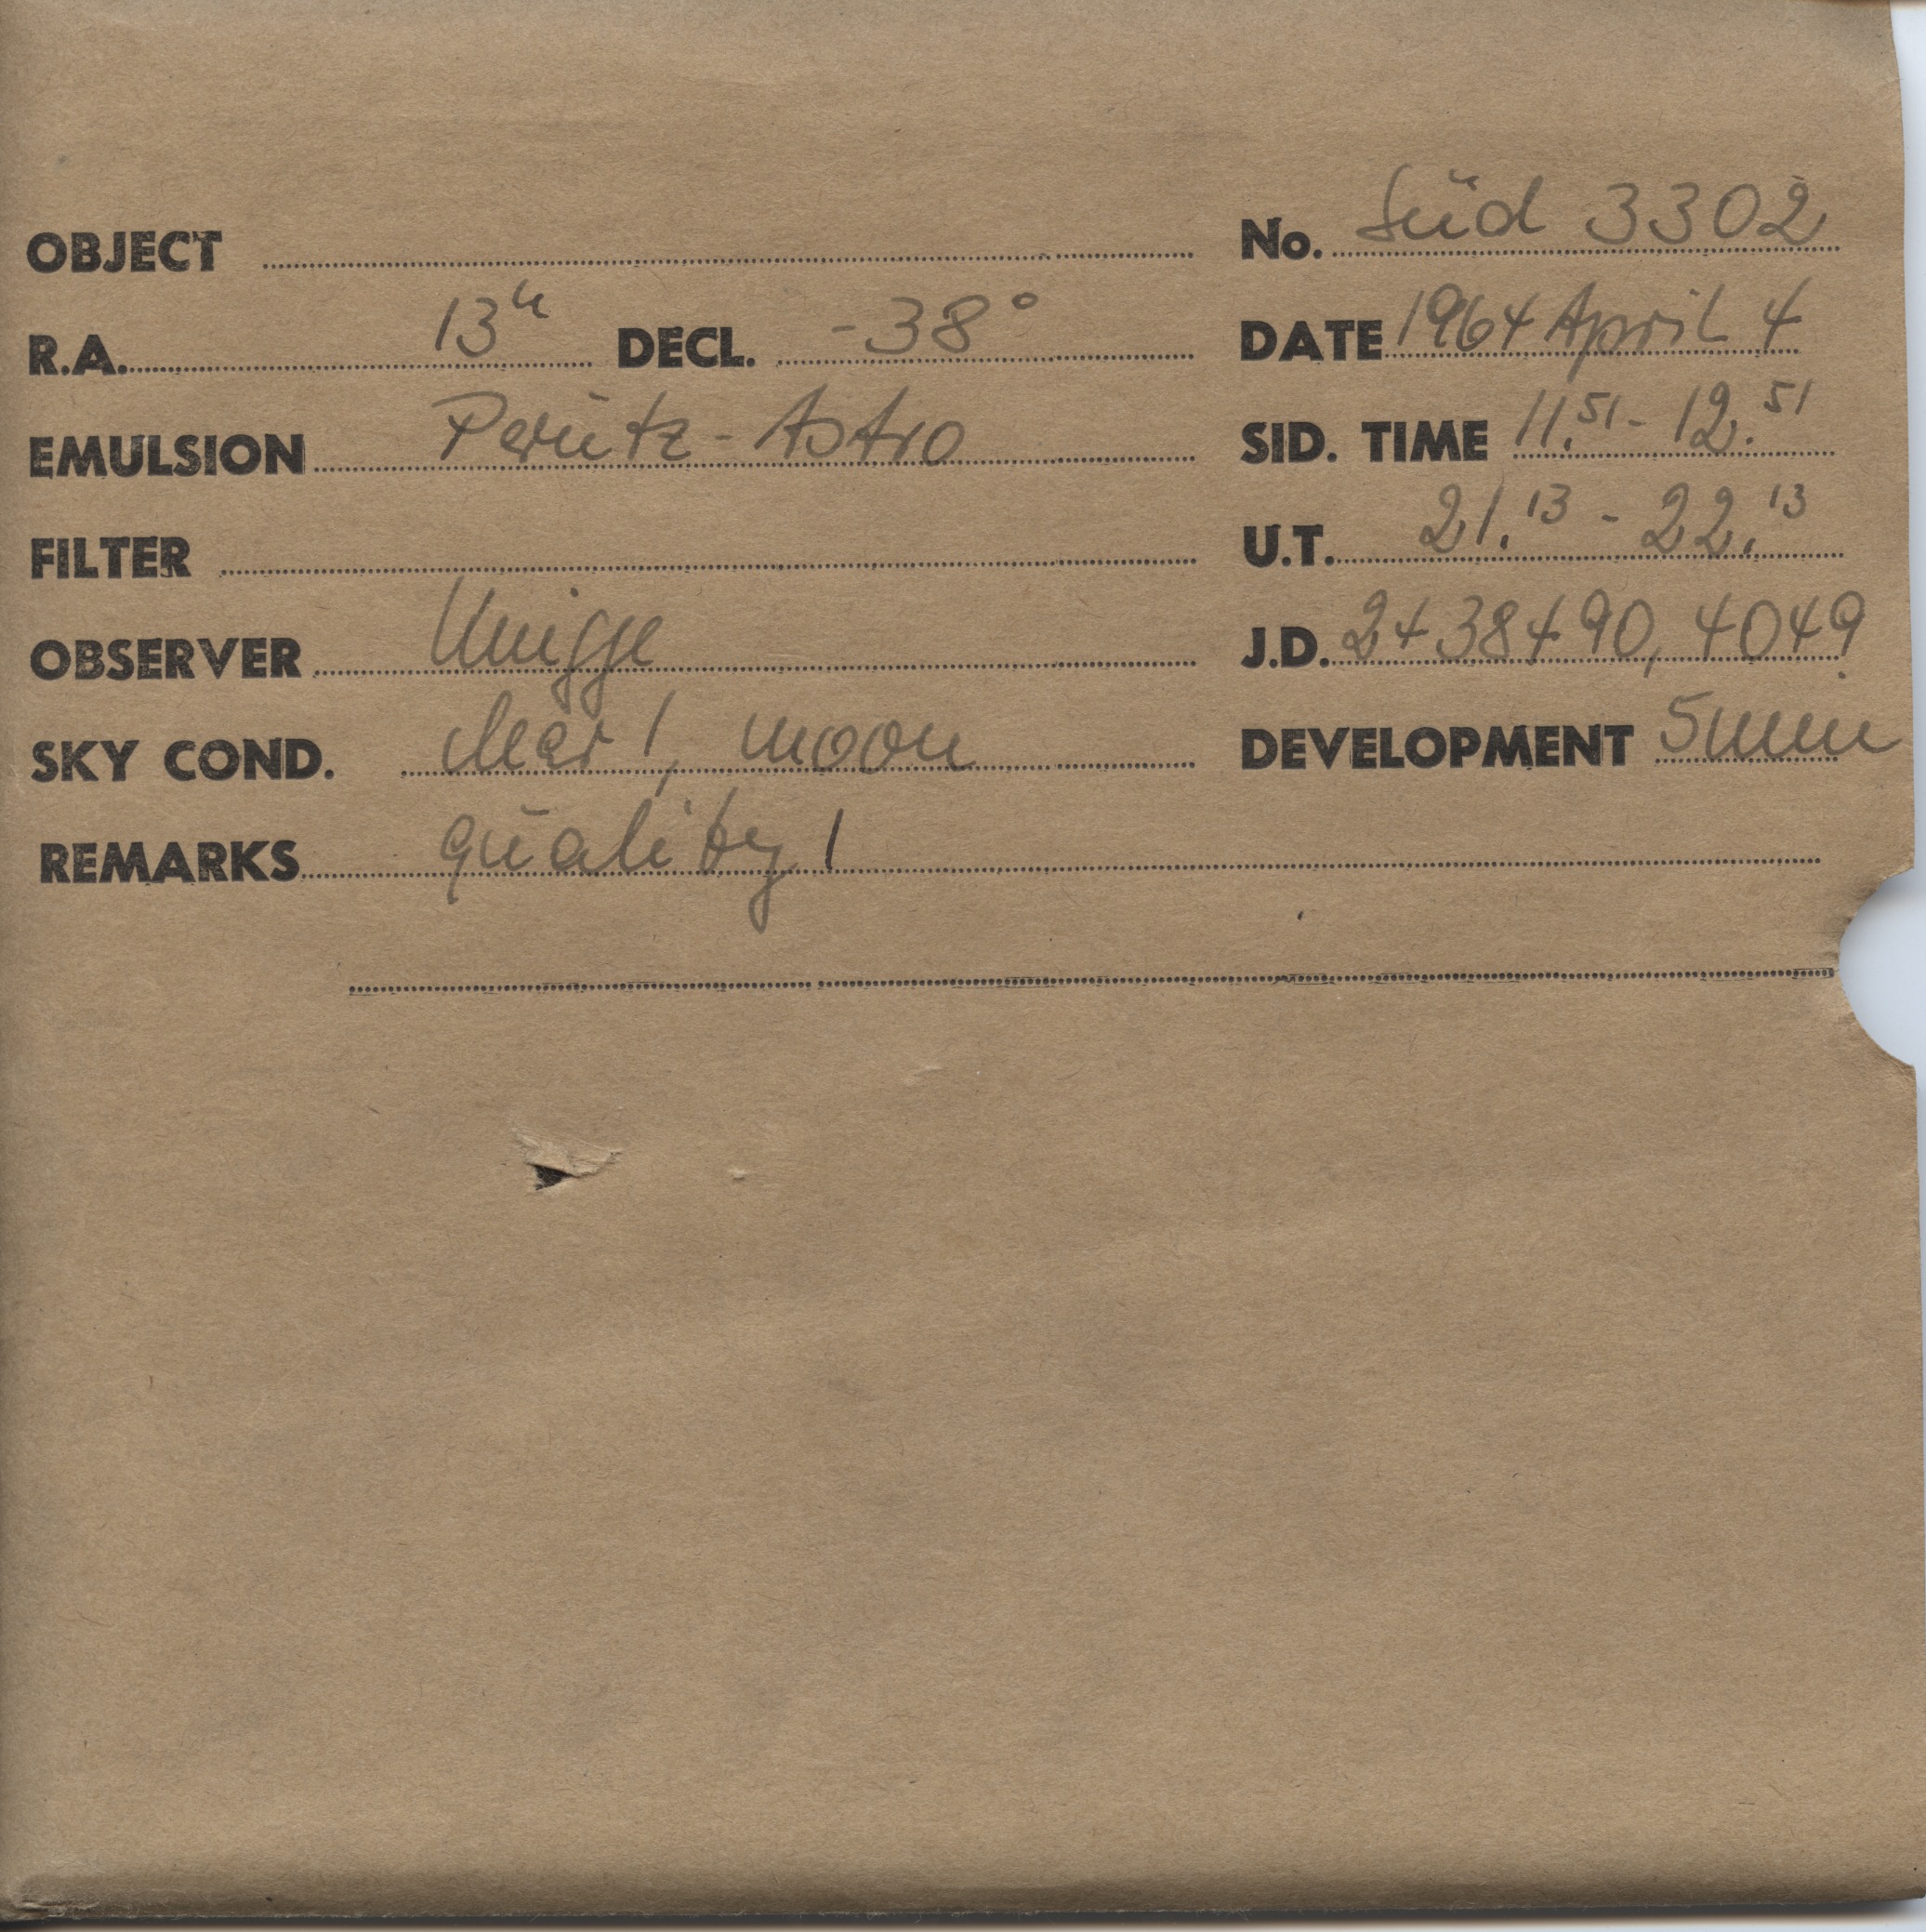 OBJECT No. Süd 3302
R.A. 13h DECL. -38° DATE 1964 April 4
EMULSION Perutz-Astro SID. TIME 11.51 - 12.51
FILTER U.T. 21.13 - 22.13
OBSERVER Knigge J.D. 2438490,4049
SKY COND. clear 1, moon DEVELOPMENT 5 min
REMARKS quality 1